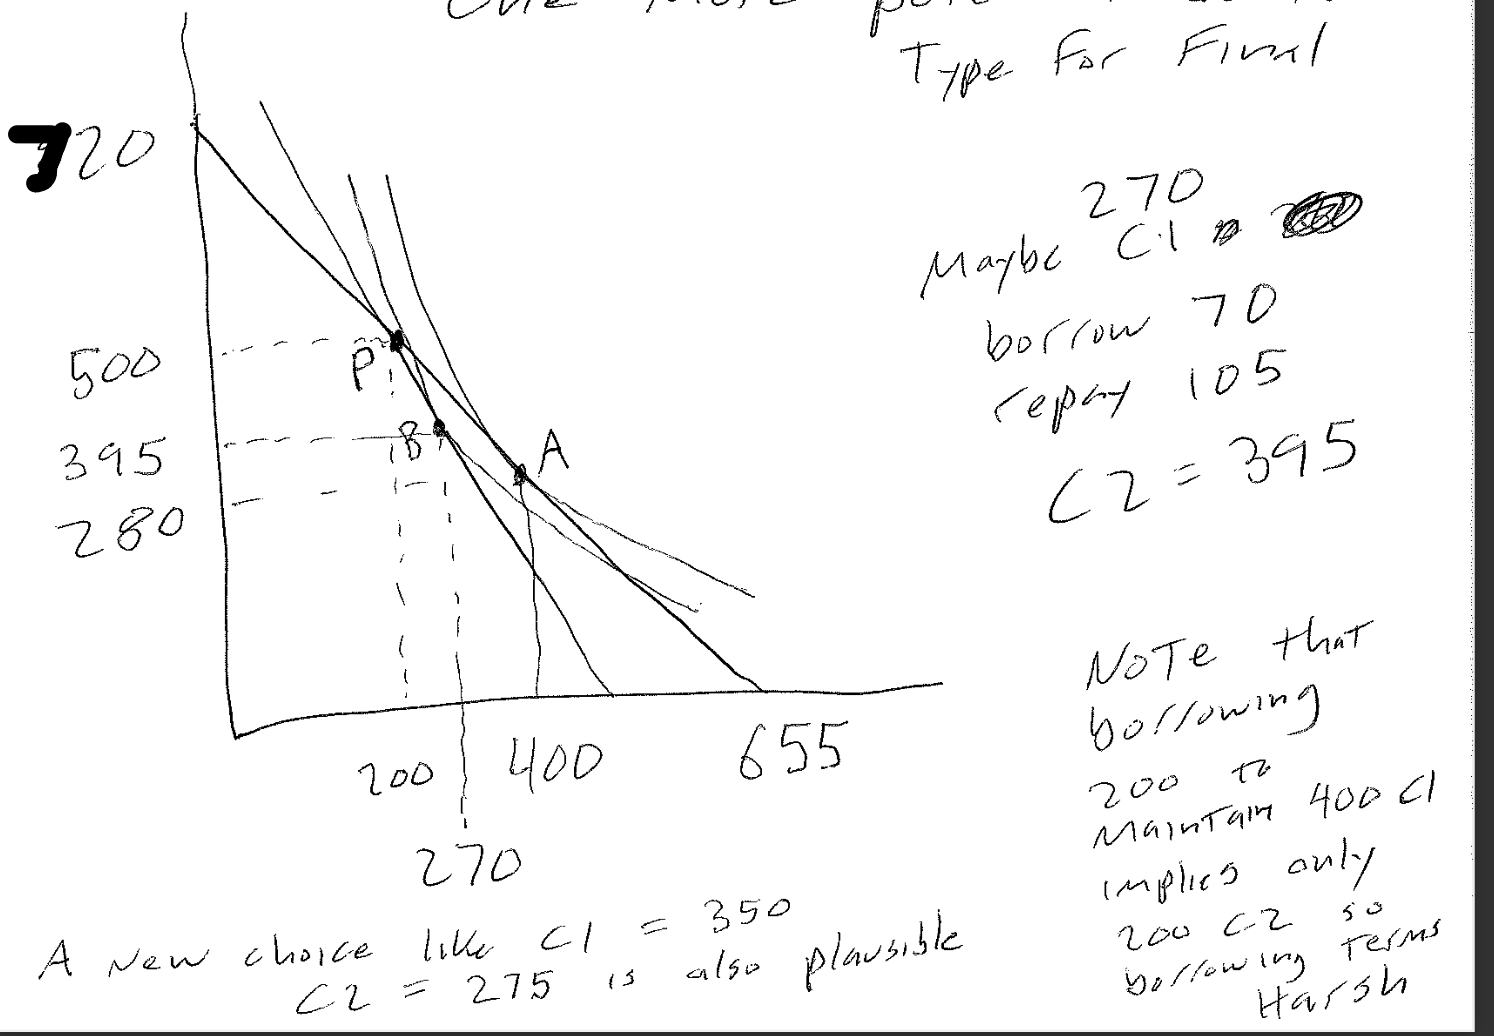 one more
Type For Final
720
500
395
280
P
B
A
200
400
655
270
270
Maybe C1
borrow 70
repay 105
C2 = 395
Note that
borrowing
200 to
Maintain 400 C1
implies only
200 C2 so
borrowing Terms
Harsh
A new choice like C1 = 350
C2 = 275 is also plausible